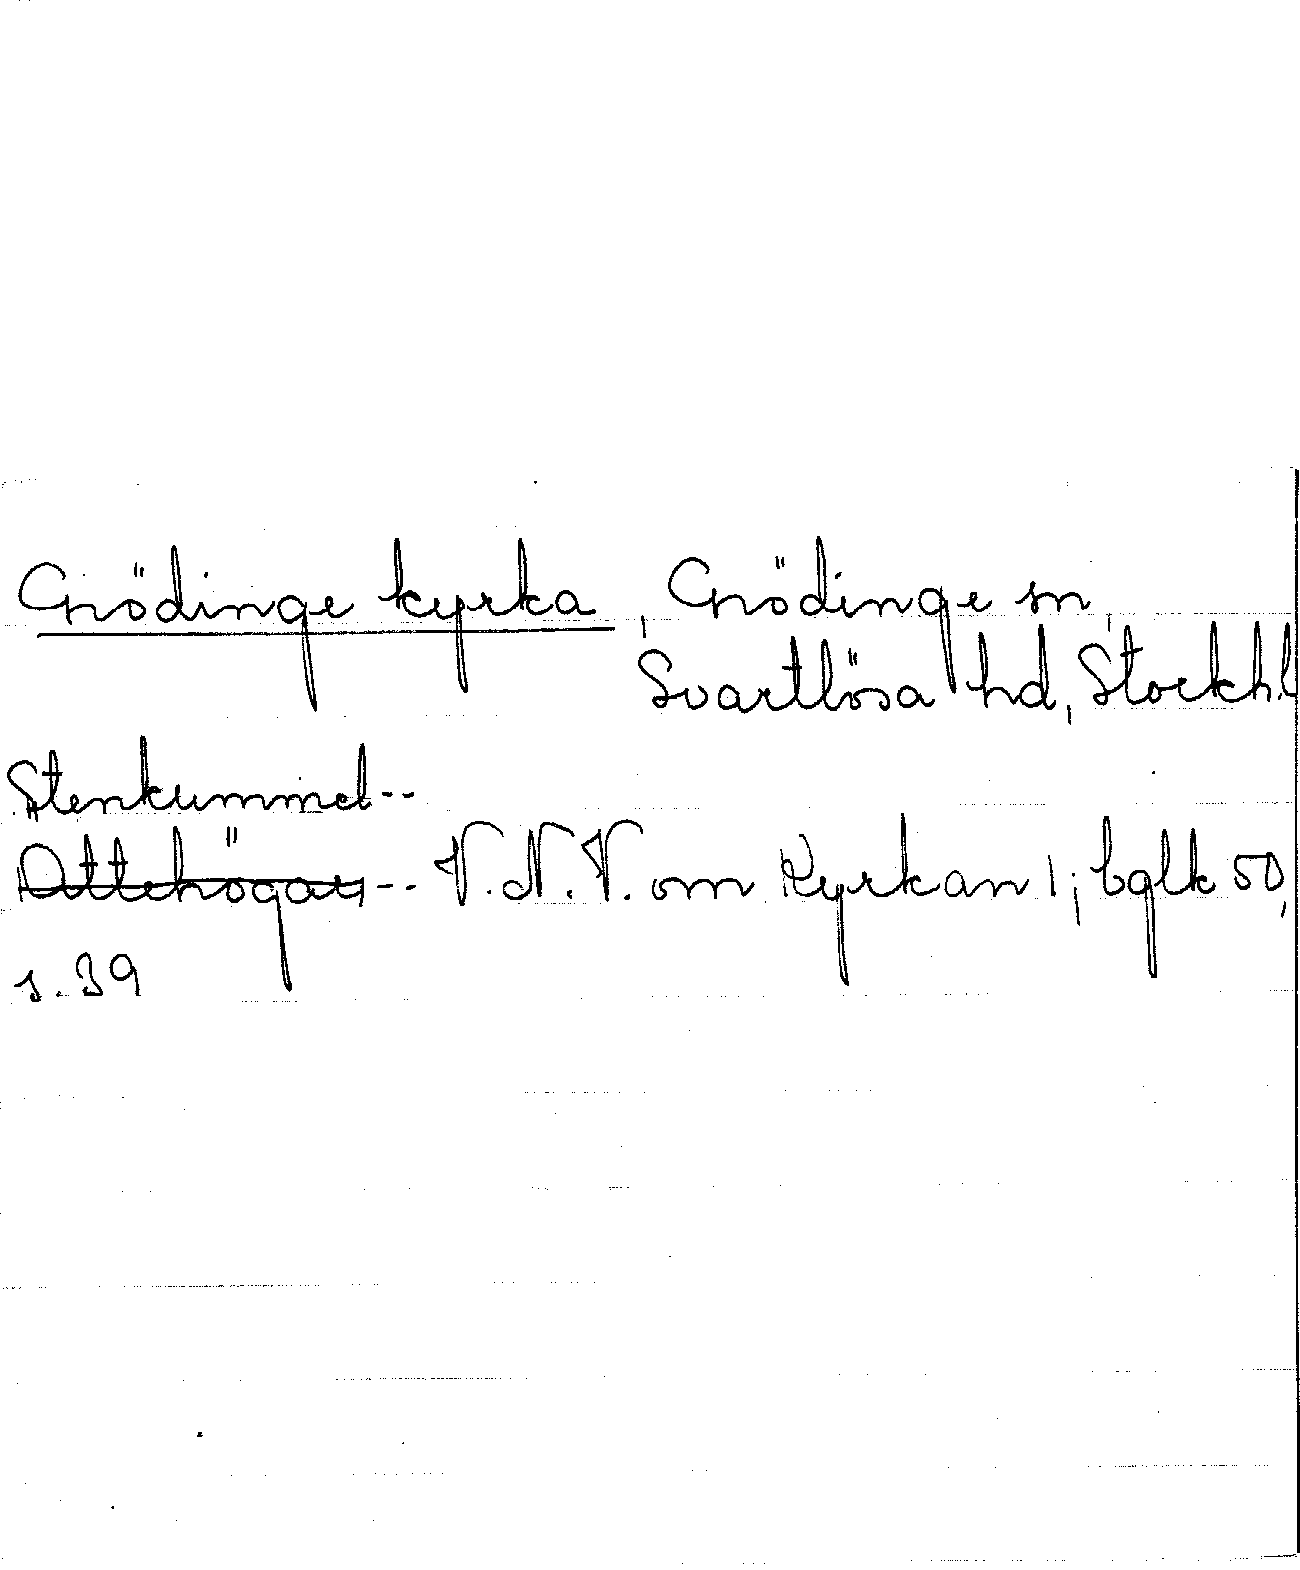 Grödinge kyrka, Grödinge sn,
Svartlösa hd, Stockh.l
Stenkummel--
Ättehögar-- V.N.V. om Kyrkan 1; bglk 50,
s. 39